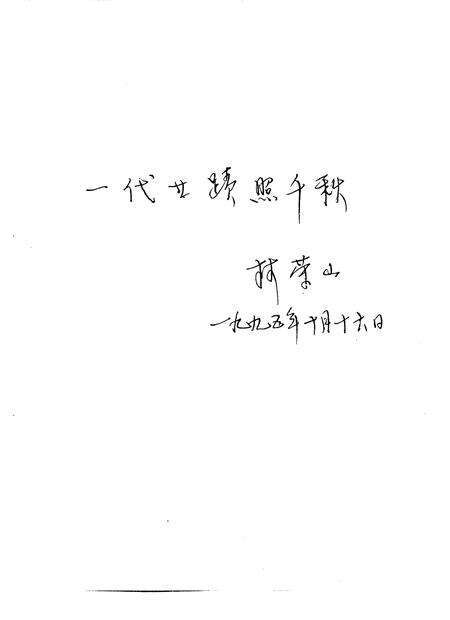 一代 蹟照千秋
林荣山
一九九五年十月十六日